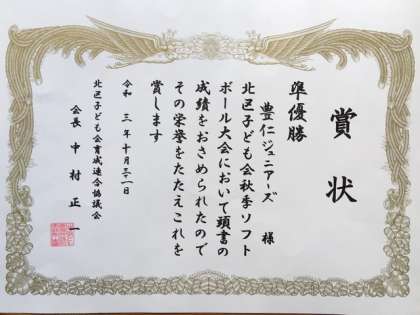 賞状
準優勝
豊仁ジュニアーズ 様
北区子ども会秋季ソフト
ボール大会において頭書の
成績をおさめられたので
その栄誉をたたえこれを
賞します
令和 三年十月三十一日
北区子ども会育成連合協議会
会長 中村正一